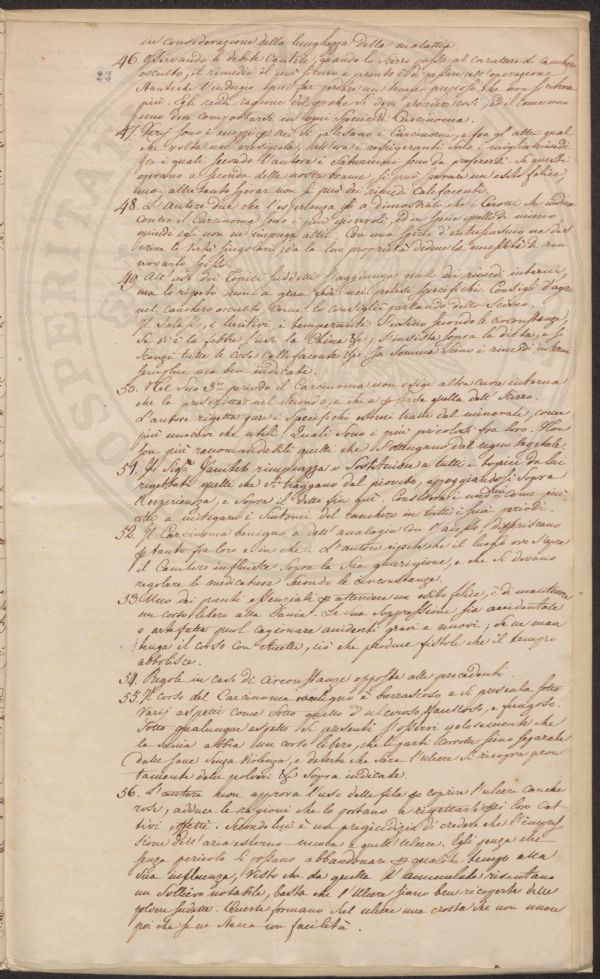 in considerazione della lunghezza della malattia.
46. Osservando le debite cautele, quando lo Scirro passa al carattere di canchero
23
occulto, il remedio il più sicuro e pronto è di passare all'operazione
stantechè l'indugio può far perdere un tempo prezioso che non si ritrova
più. Egli rende ragione del modo si deve in ogni specie di Carcinoma.
47. Varj sono i mezzi per cui si palesano i Carcinomi, e fra gl'altri qual
che volta un eresipola; allora i refrigeranti sono i migliori rimedi
fra i quali secondo l'autore i Saturnini sono da preferirsi. Se questi
operano a seconda delle nostre brame, si può sperare un esito felice,
ma altrettanto sperar non si può dai rimedi calefacenti.
48. L'Autore dice che l'esperienza gli a dimostrato che i Caustici
contro il Carcinoma sono i più giovevoli, ed in specie quello di
quindi egli non ne impiega altri. Con una specie d'entusiasmo ne des
crive le virtù singolari; da la loro proprietà deduce la necessità di rin
novarlo spesso.
49. All'uso dei Topici suddetti s'aggiunga quello dei rimedi interni,
ma lo ripeto non a gran fede nei pretesi specifici. Consigli d'agire
nel canchero occulto come lo consigliò parlando dello Scirro.
Il Salasso, i lenitivi, i temperanti s'usino secondo le circostanze,
Se vi è la febbre s'usi la China &c; s'insista sopra la dieta, e si
scanzi tutte le cose calefacenti &c. In somma sieno i rimedi interni
semplici ma ben indicati.
50. Nel suo 3zo periodo il Carcinoma non esige altra cura interna
che la prescritta nel secondo, e che a per base quella dell'Scirro.
L'autore rigetta quei Specifici esterni tratti dal minerale, come
più nocivi che utili. Quali sono i più pericolosi fra loro. Non
son più raccomandabili quelli che s'ottengano dal regno vegetale.
51. Il Sigr rimpiazza o sostituisce a tutti i topici da lui
rigettati quelli che si traggano dal piombo, appoggiandosi sopra
l'esperienza, e sopra il detto fin qui. Considera i medmi come più
atti a mitigare i sintomi del canchero in tutti i suoi periodi.
52. Il Carcinoma benigno e dell'analogia con l'ampl differiscano
pertanto fra loro e in che. L'autore riflette che il luogo ove sugge
il Canchero influisce sopra la sua guarigione, e che si devono
regolare le medicature secondo le circonstanze.
53. Uno dei punti essenziali per attendere un esito felice, è di mantenere
un corso libero alla sanie. La sua soppressione sia accidentale
o artefatta puol cagionare accidenti gravi e nuovi; se ne man
tenga il corso con ciò che produce fistole che il tempo
abbolisce.
54. Regole in caso di circonstanze opposte alle precedenti.
55. Il corso del Carcinoma maligno è burrascoso e si presenta sotto
varij aspetti come sotto quello d'ulceroso saniоso, e fungoso.
Sotto qualunque aspetto si presenti s'osservi gelosamente che
la sania abbia un corso libero, che le parti corrotte sieno separate
dalle sane senza violenza, e deterse che sieno l'ulcere si ricopra pron
tamente delle polveri &c sopra indicate.
56. L'autore non approva l'uso delle fila per coprire l'ulcere canche
rose, adduce le ragioni che lo portano a rigettarle per i loro cat
tivi effetti. Secondo lui è un pregiudizio di credere che l'impres
sione dell'aria esterna nuoccia a quell'Ulcere. Egli pensa che
senza pericolo si possano abbandonare per qualche tempo alla
sua influenza, visto che da quella l'ammalato risentano
un sollievo notabile, basta che l'Ulcere siano ben ricoperte delle
polveri sudette. Queste formano sul ulcere una crosta che non nuoce
poi che se ne stacca con facilità.